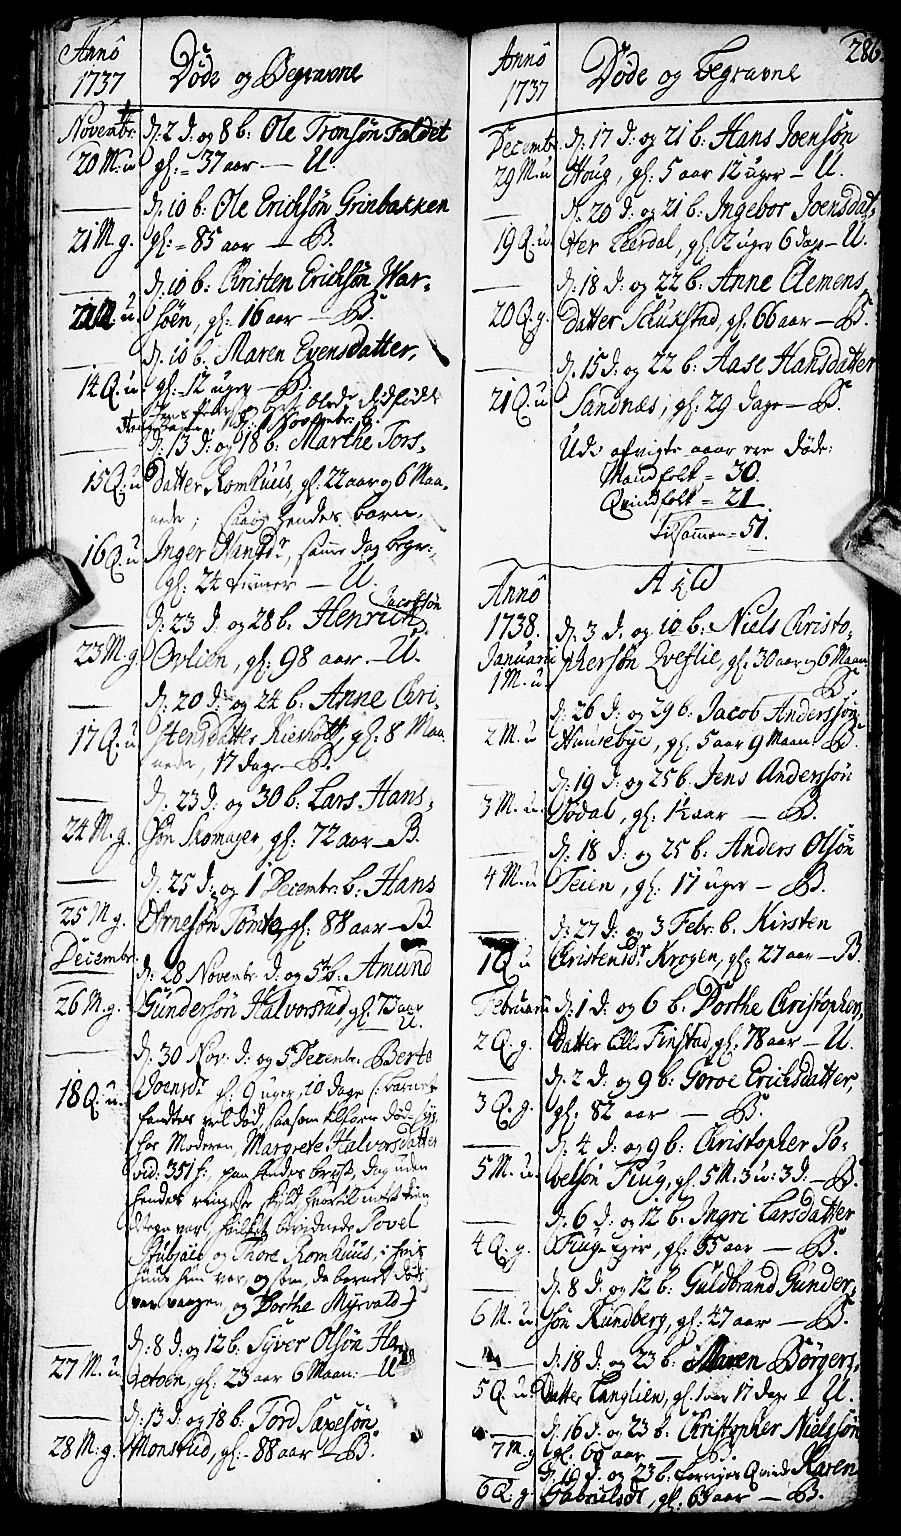 Annô
1737
Döde og Begravne
Novembr.
20 M: u
d. 2 d: og 8 b: Ole Tronsön Faldet
gl: = 37 aar — U.
21 M g.
d. 10 b: Ole Ericksön Grinbakken
gl: = 85 aar — B.
u.
d. 10 b: Christen Ericksön War-
söen, gl: 16 aar — B.
14 Q. u
d. 10 b. Maren Evensdatter,
gl: 12 uger — B.
15 Q. u
d. 13 d: og 18 b: Marthe Tors-
datter Romhuus, gl. 22 aar og 6 Maa-
neder; saa og hendes barn,
16 Q. u
Inger, samme dag begr:,
gl: 24 timer — U.
23 M g.
d: 23 d: og 28 b: Henrich Jacobsön
Ovlien, gl: 98 aar — U.
17 Q. u
d: 20 d: og 24 b: Anne Chri-
stensdatter, gl: 8 Maa-
neder, 17 dage B.
24 M. g.
d. 23 d: og 30 b: Lars Hans-
sön Skomager, gl: 72 aar B.
25 M g.
d: 25 d: og 1 Decembr: b: Hans
Arnesön Tömte, gl: 88 aar — B
Decembr:
26 M: g.
d: 28 Novembr. d: og 5 b: Amund
Gundersön Halvorsrud, gl: 73 aar
U.
18 Q: u.
d: 30 Nov: d: og 5 Decembr: Berte
Joensdr gl: 9 uger, 10 dage (: barnet
fandtes ved död, saasom tilforn död-syg,
hos Moderen, Margrete Halvorsdatter
hendes ringeste skyld
var, hvilket bevidnede Povel
og Thore Romhuus, i hvis
huus hun var, og som, da barnet död
var vaagen, og Dorthe Myrvald :)
27 M: u.
d: 8 d: og 12 b: Syver Olsön Ha-
retoen, gl: 23 aar 6 Maan: — U
28 M: g.
d: 13 d: og 18 b: Tord Saxesön
Monstud, gl: 88 aar — B.
286.
Annô
1737
Döde og Begravne
Decembr
29 M: u
d: 17 d: og 21 b: Hans Joensön
Houg, gl: 5 aar 12 uger — U.
19 Q. u
d. 20 d: og 21 b: Ingebor Joensdat-
ter Leerdal, gl: 2 uger 6 dage — U.
20 Q. g.
d: 18 d: og 22 b: Anne Clemens
datter, gl: 66 aar — B.
21 Q. u
d: 15 d: og 22 b: Aase Hansdatter
Sandnæs, gl: 29 dage — B.
Udi afvigte aar ere döde:
Mandfolk = 30.
Qvindfolk = 21.
Tilsammen = 51.
Annô
1738.
Januarii
1 M: u.
d: 3 d. og 10 b: Niels Christo-
phersön, gl: 30 aar og 6 Maan:
B.
2 M: u
d: 26 d: og 29 b: Jacob Anderssön
Hunsebye, gl: 5 aar 9 Maan: B.
3 M: u.
d: 19 d: og 25 b: Jens Anderssön
Sodal, gl: 1½ aar — B.
4 M: u
d: 18 d: og 25 b: Anders Olsön
Teien, gl: 17 uger — B.
1 Q u
d: 27 d: og 3 Febr: b. Kirsten
Christensdr Krogen, gl: 27 aar — B.
Februarii
2 Q. g.
d: 1 d: og 6 b: Dorthe Christophers
datter Lille Finstad, gl: 78 aar — U.
3 Q. g.
d: 2 d: og 9 b: Goroe Ericksdatter,
gl: 82 aar — B.
5 M: u.
d: 4 d: og 9 b: Christopher Po-
velsön Kiug, gl: 5 M: 3 u: 3 d: — B.
4 Q. g.
d: 6 d: og 12 b: Ingri Larsdatter
eier, gl: 55 aar — B.
6 M: u.
d: 8 d: og 12 b: Guldbrand Gunder-
sön Rundberg, gl: 47 aar — B.
5 Q u.
d: 18 d: og 23 b: Maren Börgers
datter Langlien, gl: 1 aar 17 dage — U.
7 M: g
d: 16 d: og 23 b: Christopher Nielssön
gl: 66 aar — B.
6 Q. g.
d: 19 d: og 23 b: Qvinde Karen
Gabrielsdr, gl: 63 aar — B.